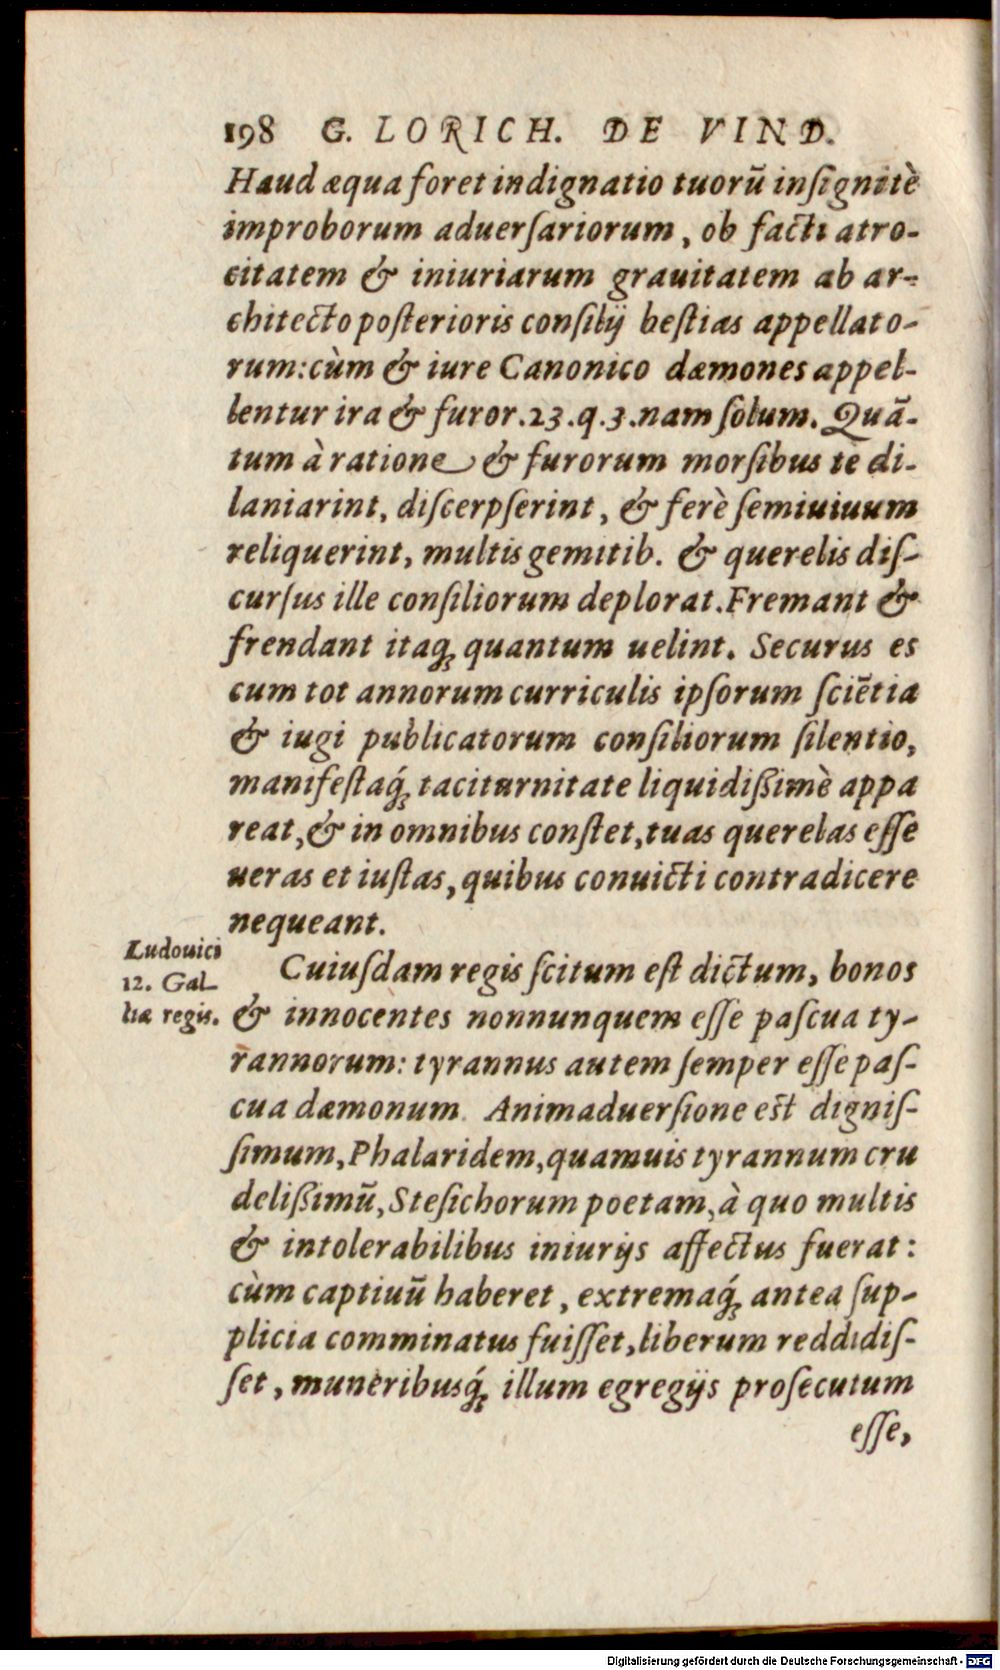 198 G. LORICH. DE VIND.
Haud æqua foret indignatio tuorū inſignitè
improborum aduerſariorum, ob facti atro-
citatem & iniuriarum grauitatem ab ar-
chitecto poſterioris conſilij beſtias appellato-
rum: cùm & iure Canonico dæmones appel-
lentur ira & furor. 23. q. 3. nam ſolum. Quā-
tum à ratione & furorum morſibus te di-
laniarint, diſcerpſerint, & ferè ſemiuiuum
reliquerint, multis gemitib. & querelis diſ-
curſus ille conſiliorum deplorat. Fremant &
frendant itaq; quantum uelint. Securus es
cum tot annorum curriculis ipſorum ſciētia
& iugi publicatorum conſiliorum ſilentio,
manifeſtaq́; taciturnitate liquidißimè appa
reat, & in omnibus conſtet, tuas querelas eſſe
ueras et iuſtas, quibus conuicti contradicere
nequeant.
Ludouici
12. Gal-
liæ regis.
Cuiuſdam regis ſcitum eſt dictum, bonos
& innocentes nonnunquem eſſe paſcua ty-
rannorum: tyrannus autem ſemper eſſe paſ-
cua dæmonum. Animaduerſione eſt digniſ-
ſimum, Phalaridem, quamuis tyrannum cru
delißimū, Steſichorum poetam, à quo multis
& intolerabilibus iniurijs affectus fuerat:
cùm captiuū haberet, extremaq́; antea ſup-
plicia comminatus fuiſſet, liberum reddidiſ-
ſet, muneribusq́; illum egregijs proſecutum
eſſe,
Digitalisierung gefördert durch die Deutsche Forschungsgemeinschaft - DFG